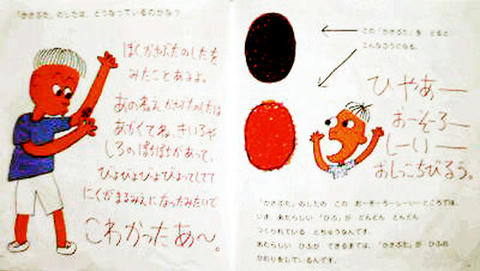 「かさぶた」のしたは、どうなっているのかな？
ぼくかさぶたのしたを
みたことあるよ。
あのねえ かさぶたのしたは
あかくてね、きいろや
しろの ぽちぽちがあって、
ぴょぴょぴょぴょってしてて
にくがまるみえになったみたいで
こわかったあ〜。
この「かさぶた」を とると
こんなふうになる。
ひやあー
おーそろー
しーいー
おしっこちびるう。
「かさぶた」のしたの この おーそーろーしーいーところでは、
いま あたらしい「ひふ」が どんどん どんどん
つくられている とちゅうなんです。
あたらしい ひふが できるまでは、「かさぶた」が ひふの
かわりをしているんです。